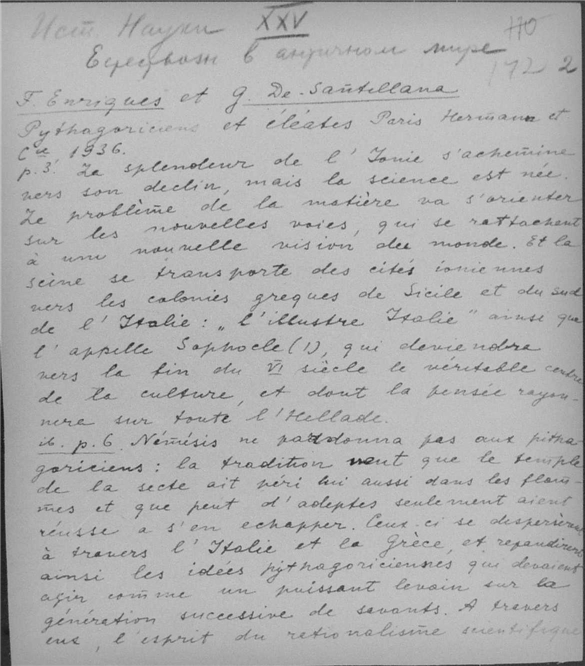 Ист. Науки XXV
Естествозн в античном мире
172 2
F. Enriques et G. De-Santillana
Pythagoriciens et éléates Paris Hermann et
Cie 1936.
p. 3. La splendeur de l'Ionie s'achemine
vers son declin, mais la science est née.
Le problème de la matière va s'orienter
sur les nouvelles voies, qui se rattachent
à une nouvelle vision du monde. Et la
scène se transporte des cités ioniennes
vers les colonies greques de Sicile et du sud
de l'Italie: „l'illustre Italie" ainsi que
l'appelle Sophocle (1), qui deviendra
vers la fin du VI siècle le véritable centre
de la culture, et dont la pensée rayon-
nera sur toute l'Hellade.
ib. p. 6. Némésis ne pardonna pas aux pitha-
goriciens: la tradition veut que le temple
de la secte ait péri lui aussi dans les flam-
mes et que peut d'adeptes seulement aient
réusse a s'en echapper. Ceux-ci se disperserent
à travers l'Italie et la Grèce, et repandirent
ainsi les idées pythagoriciennes qui devaient
agir comme un puissant levain sur la
génération successive de savants. A travers
eus, l'esprit du rationalisme scientifique